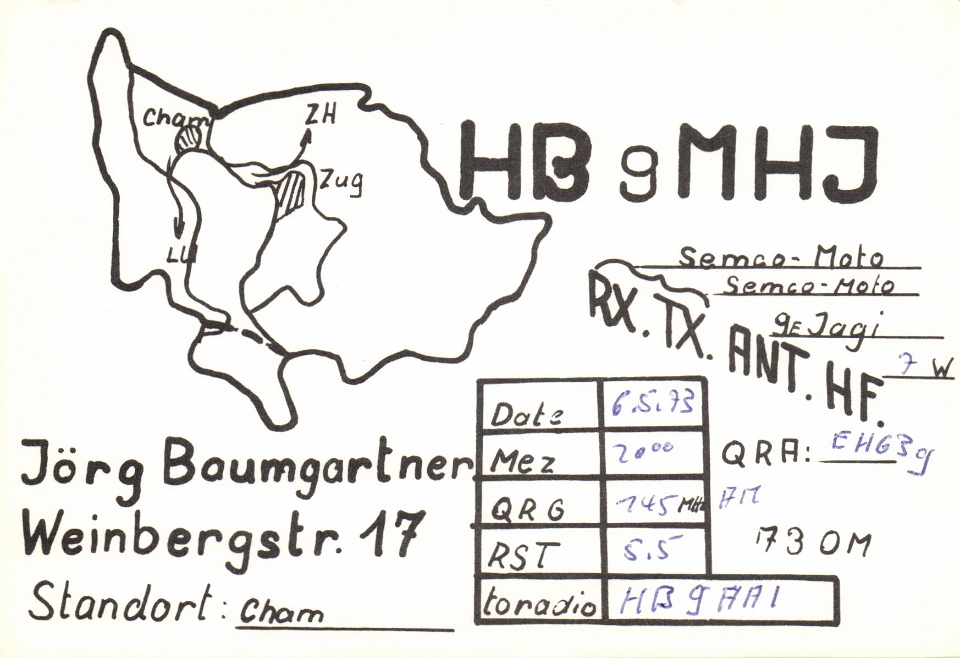 Cham
ZH
Zug
LU
HB 9 MHJ
Semco-Moto
Semco-Moto
9E Jagi
7 W
RX. TX. ANT. HF.
Date 6.5.73
Mez 20⁰⁰
QRG 145 MHz AM
RST 5.5
toradio HB9AAI
QRA: EH63g
73 OM
Jörg Baumgartner
Weinbergstr. 17
Standort: Cham